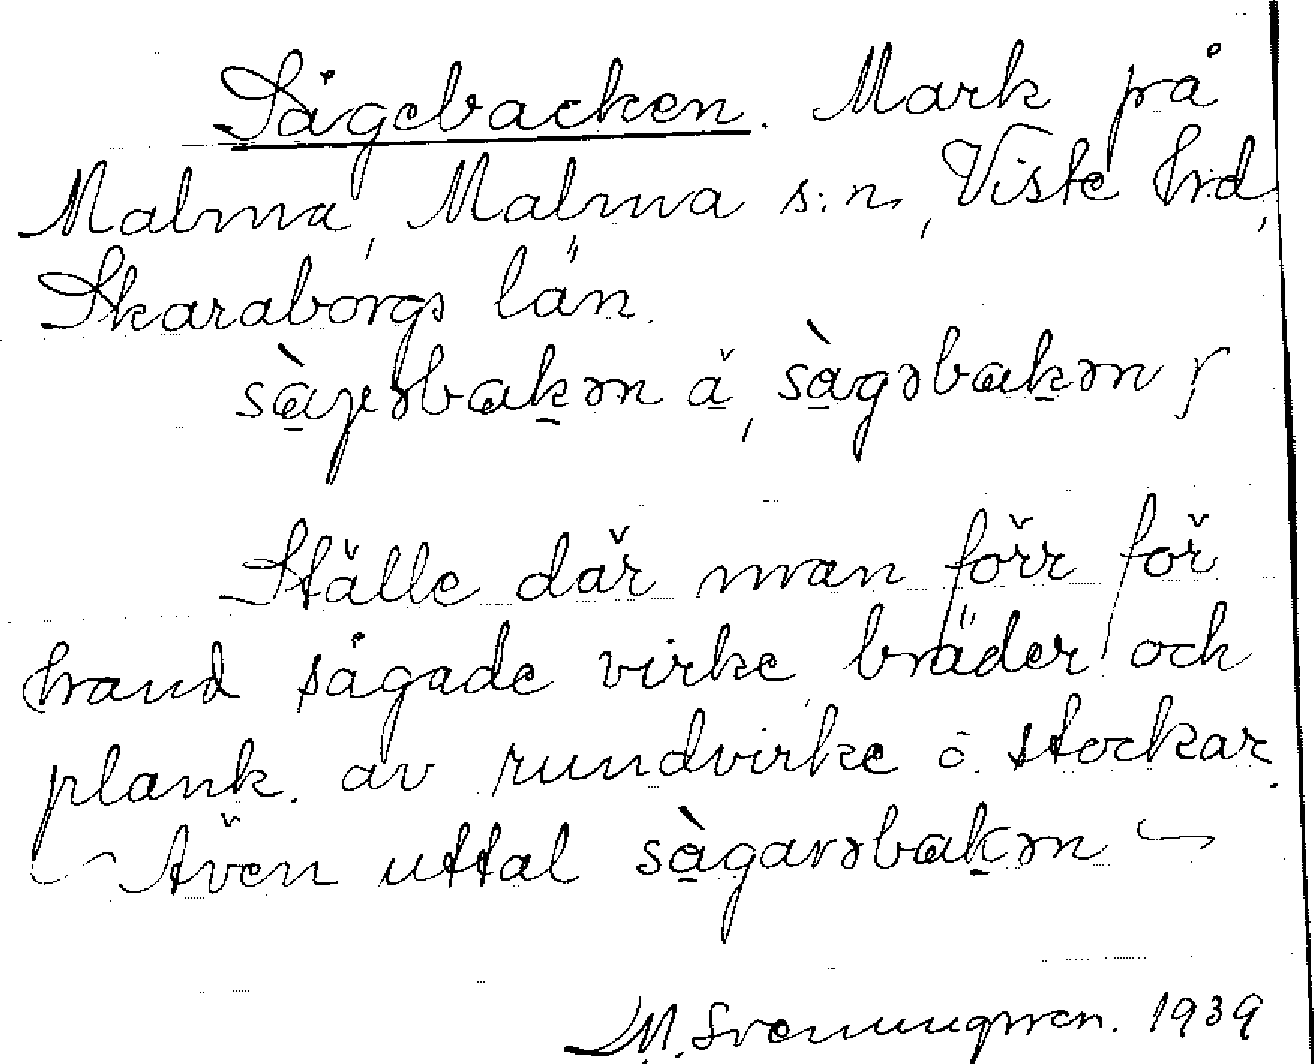 Sågebacken. Mark på
Malma, Malma s:n, Viste hrd,
Skaraborgs län.
sàgəbakən å, sàgəbakən
Ställe där man förr för
hand sågade virke, bräder och
plank. av rundvirke o. stockar.
Även uttal sàgarəbakən
1939